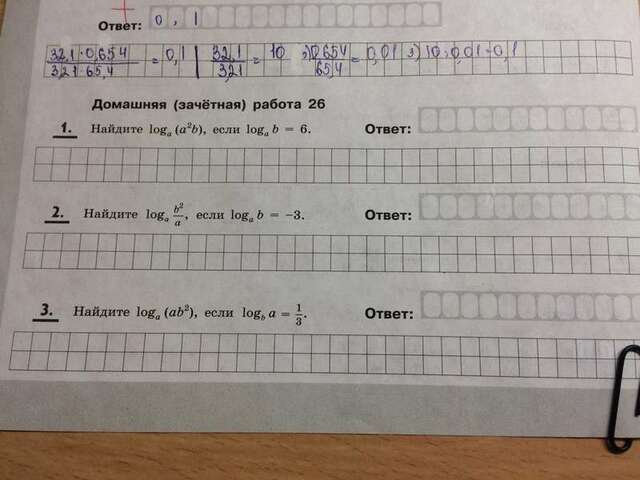 Ответ: 0,1
32,1·0,654 / 321·65,4 = 0,1 | 32,1 / 3,21 = 10 2) 0,654 / 65,4 = 0,01 3) 10·0,01=0,1
Домашняя (зачётная) работа 26
1. Найдите logₐ (a²b), если logₐ b = 6. Ответ:
2. Найдите logₐ b²/a, если logₐ b = −3. Ответ:
3. Найдите logₐ (ab²), если log_b a = 1/3. Ответ: